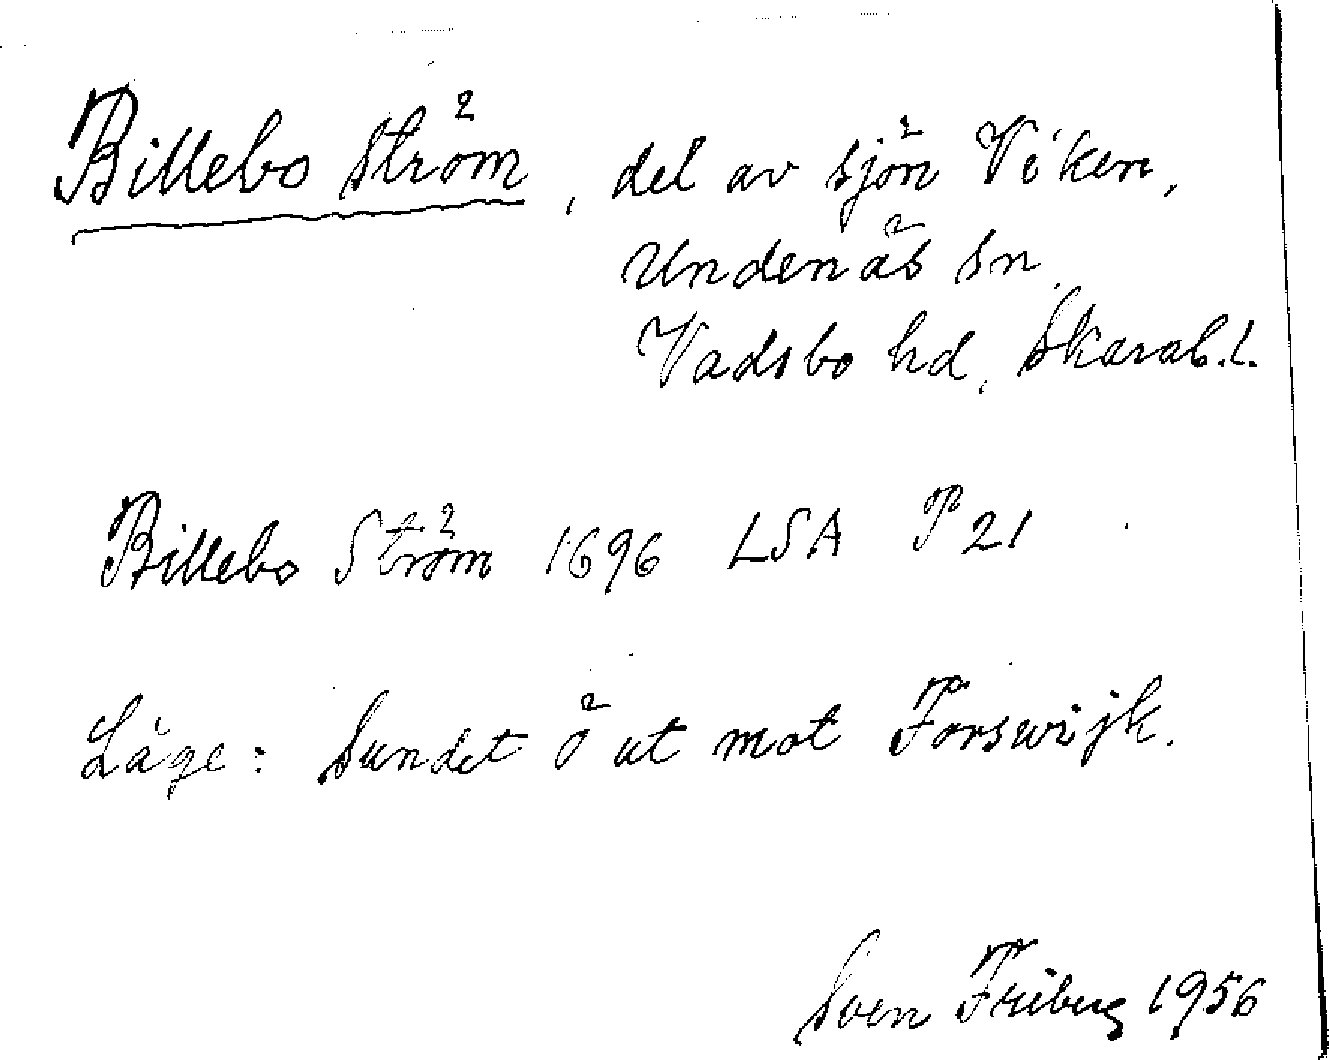 Billebo ström, del av sjön Viken,
Undenäs sn,
Vadsbo hd, Skarab. l.
Billebo Ström 1696 LSA P 21
Läge: Sundet ö ut mot Forswijk.
Sven Friberg 1956